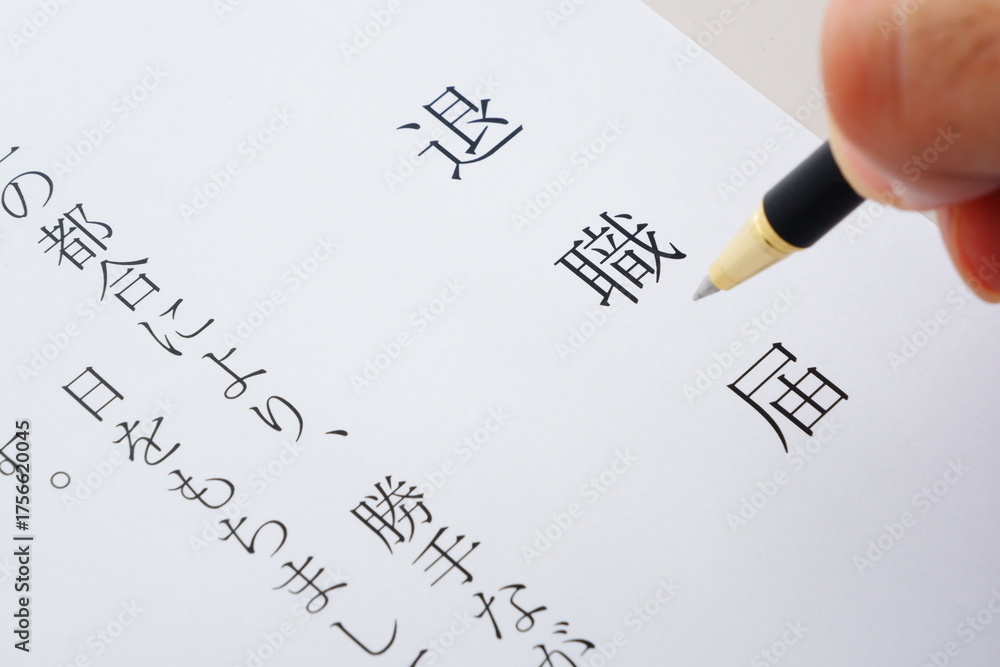 退職届
の都合により、勝手なが
日をもちまし
。
Adobe Stock | #1756620045